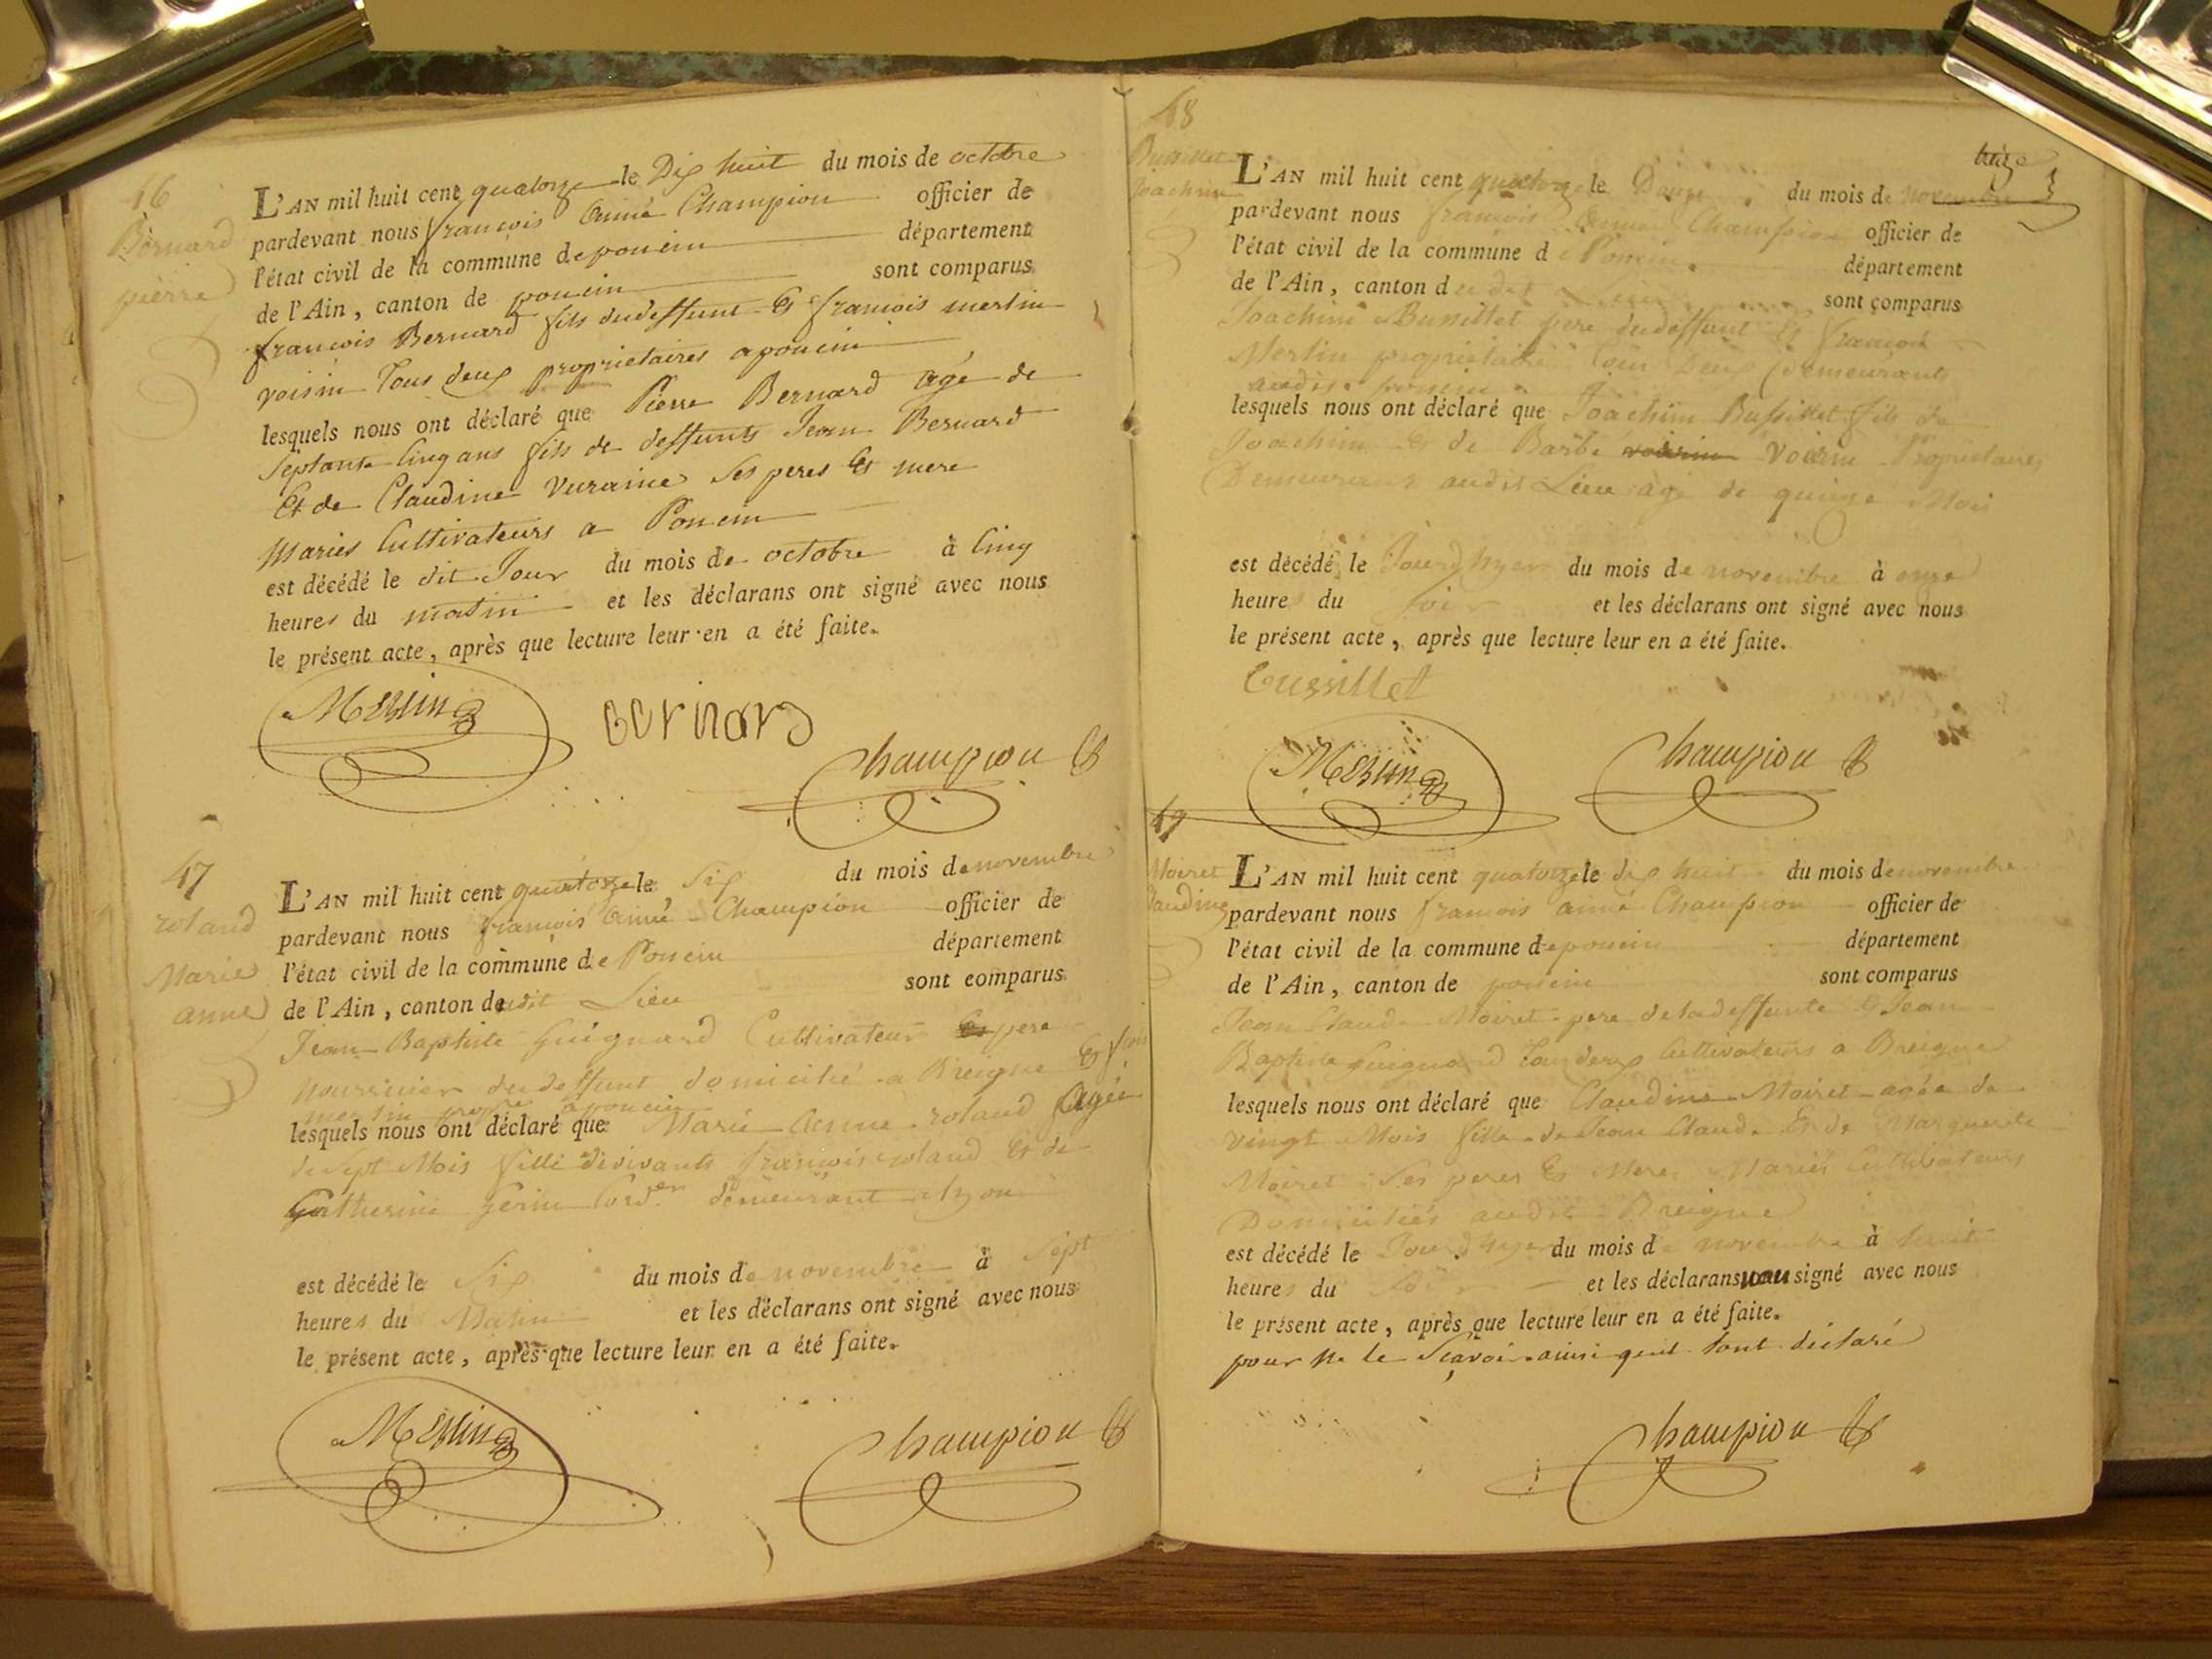 46
Bernard
pierre
L'AN mil huit cent quatorze le Dix huit du mois de octobre
pardevant nous francois aimé Champion officier de
l'état civil de la commune de poncin département
de l'Ain, canton de poncin sont comparus
francois Bernard fils du deffunt Et francois merlin
voisin Tous deux proprietaires a poncin
lesquels nous ont déclaré que Pierre Bernard agé de
septante Cinq ans fils de deffunts Jean Bernard
Et de Claudine vuraine ses peres Et mere
Mariés Cultivateurs a Poncin
est décédé le dit Jour du mois de octobre à Cinq
heures du matin et les déclarans ont signé avec nous
le présent acte, après que lecture leur en a été faite.
Merlin
bernard
Champion
47
roland
Marie
anne
L'AN mil huit cent quatorze le Six du mois de novembre
pardevant nous francois aimé Champion officier de
l'état civil de la commune de Poncin département
de l'Ain, canton dudit Lieu sont comparus
Jean Baptiste Guignard Cultivateur pere
nourricier du deffunt domicilié a Breigne Et fcois
merlin propre a poncin
lesquels nous ont déclaré que Marie Anne roland agée
de sept Mois fille de vivants francois roland Et de
Catherine Gerin Cord.er demeurant a lyon
est décédé le Six du mois de novembre à Sept
heures du Matin et les déclarans ont signé avec nous
le présent acte, après que lecture leur en a été faite.
Merlin
Champion
48
Bussillet
Joachim
treize
L'AN mil huit cent quatorze le Douze du mois de novembre
pardevant nous francois aimé Champion officier de
l'état civil de la commune de Poncin département
de l'Ain, canton dudit Lieu sont comparus
Joachim Bussillet pere du deffunt Et francois
Merlin proprietaire tous Deux Demeurants
audit poncin
lesquels nous ont déclaré que Joachim Bussillet fils de
Joachim Et de Barbe voisin Voirin Proprietaires
Demeurans audit Lieu agé de quinze Mois
est décédé le Jour d'hyer du mois de novembre à onze
heures du soir et les déclarans ont signé avec nous
le présent acte, après que lecture leur en a été faite.
Bussillet
Merlin
Champion
49
Moiret
Claudine
L'AN mil huit cent quatorze le dix huit du mois de novembre
pardevant nous francois aimé Champion officier de
l'état civil de la commune de poncin département
de l'Ain, canton de poncin sont comparus
Jean Claude Moiret pere de la deffunte Et Jean
Baptiste guignard tous deux Cultivateurs a Breigne
lesquels nous ont déclaré que Claudine Moiret agée de
vingt Mois fille de Jean Claude Et de Marguerite
Moiret Ses peres Et Mere Mariés Cultivateurs
Domiciliés audit Breigne
est décédé le Jour d'hyer du mois de novembre à huit
heures du soir et les déclarans non signé avec nous
le présent acte, après que lecture leur en a été faite.
pour ne le Sçavoir ainsi quil l'ont déclaré
Champion